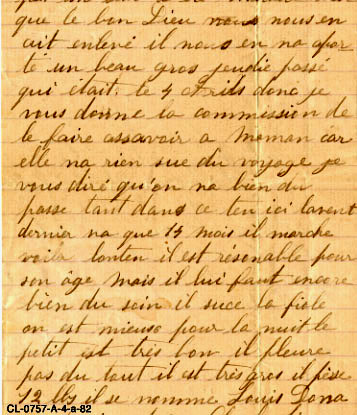 que le bon Dieu nous nous en
ait enlevé il nous en na apor-
té un beau gros jeudie passé
qui était le 4 avrils donc je
vous donne la commission de
le faire assavoir a moman car
elle na rien sue du voyage je
vous diré qu'on na bien du
passe tant dans ce ten ici lavent
dernier na que 14 mois il marche
voila lonten il est résonable pour
son âge mais il lui faut encore
bien du soin il succe la fiole
on est mieuse pour la nuit le
petit est très bon il pleure
pas du tout il est très gros il pèse
12 lbs il se nomme Louis Dona
CL-0757-A-4-a-82